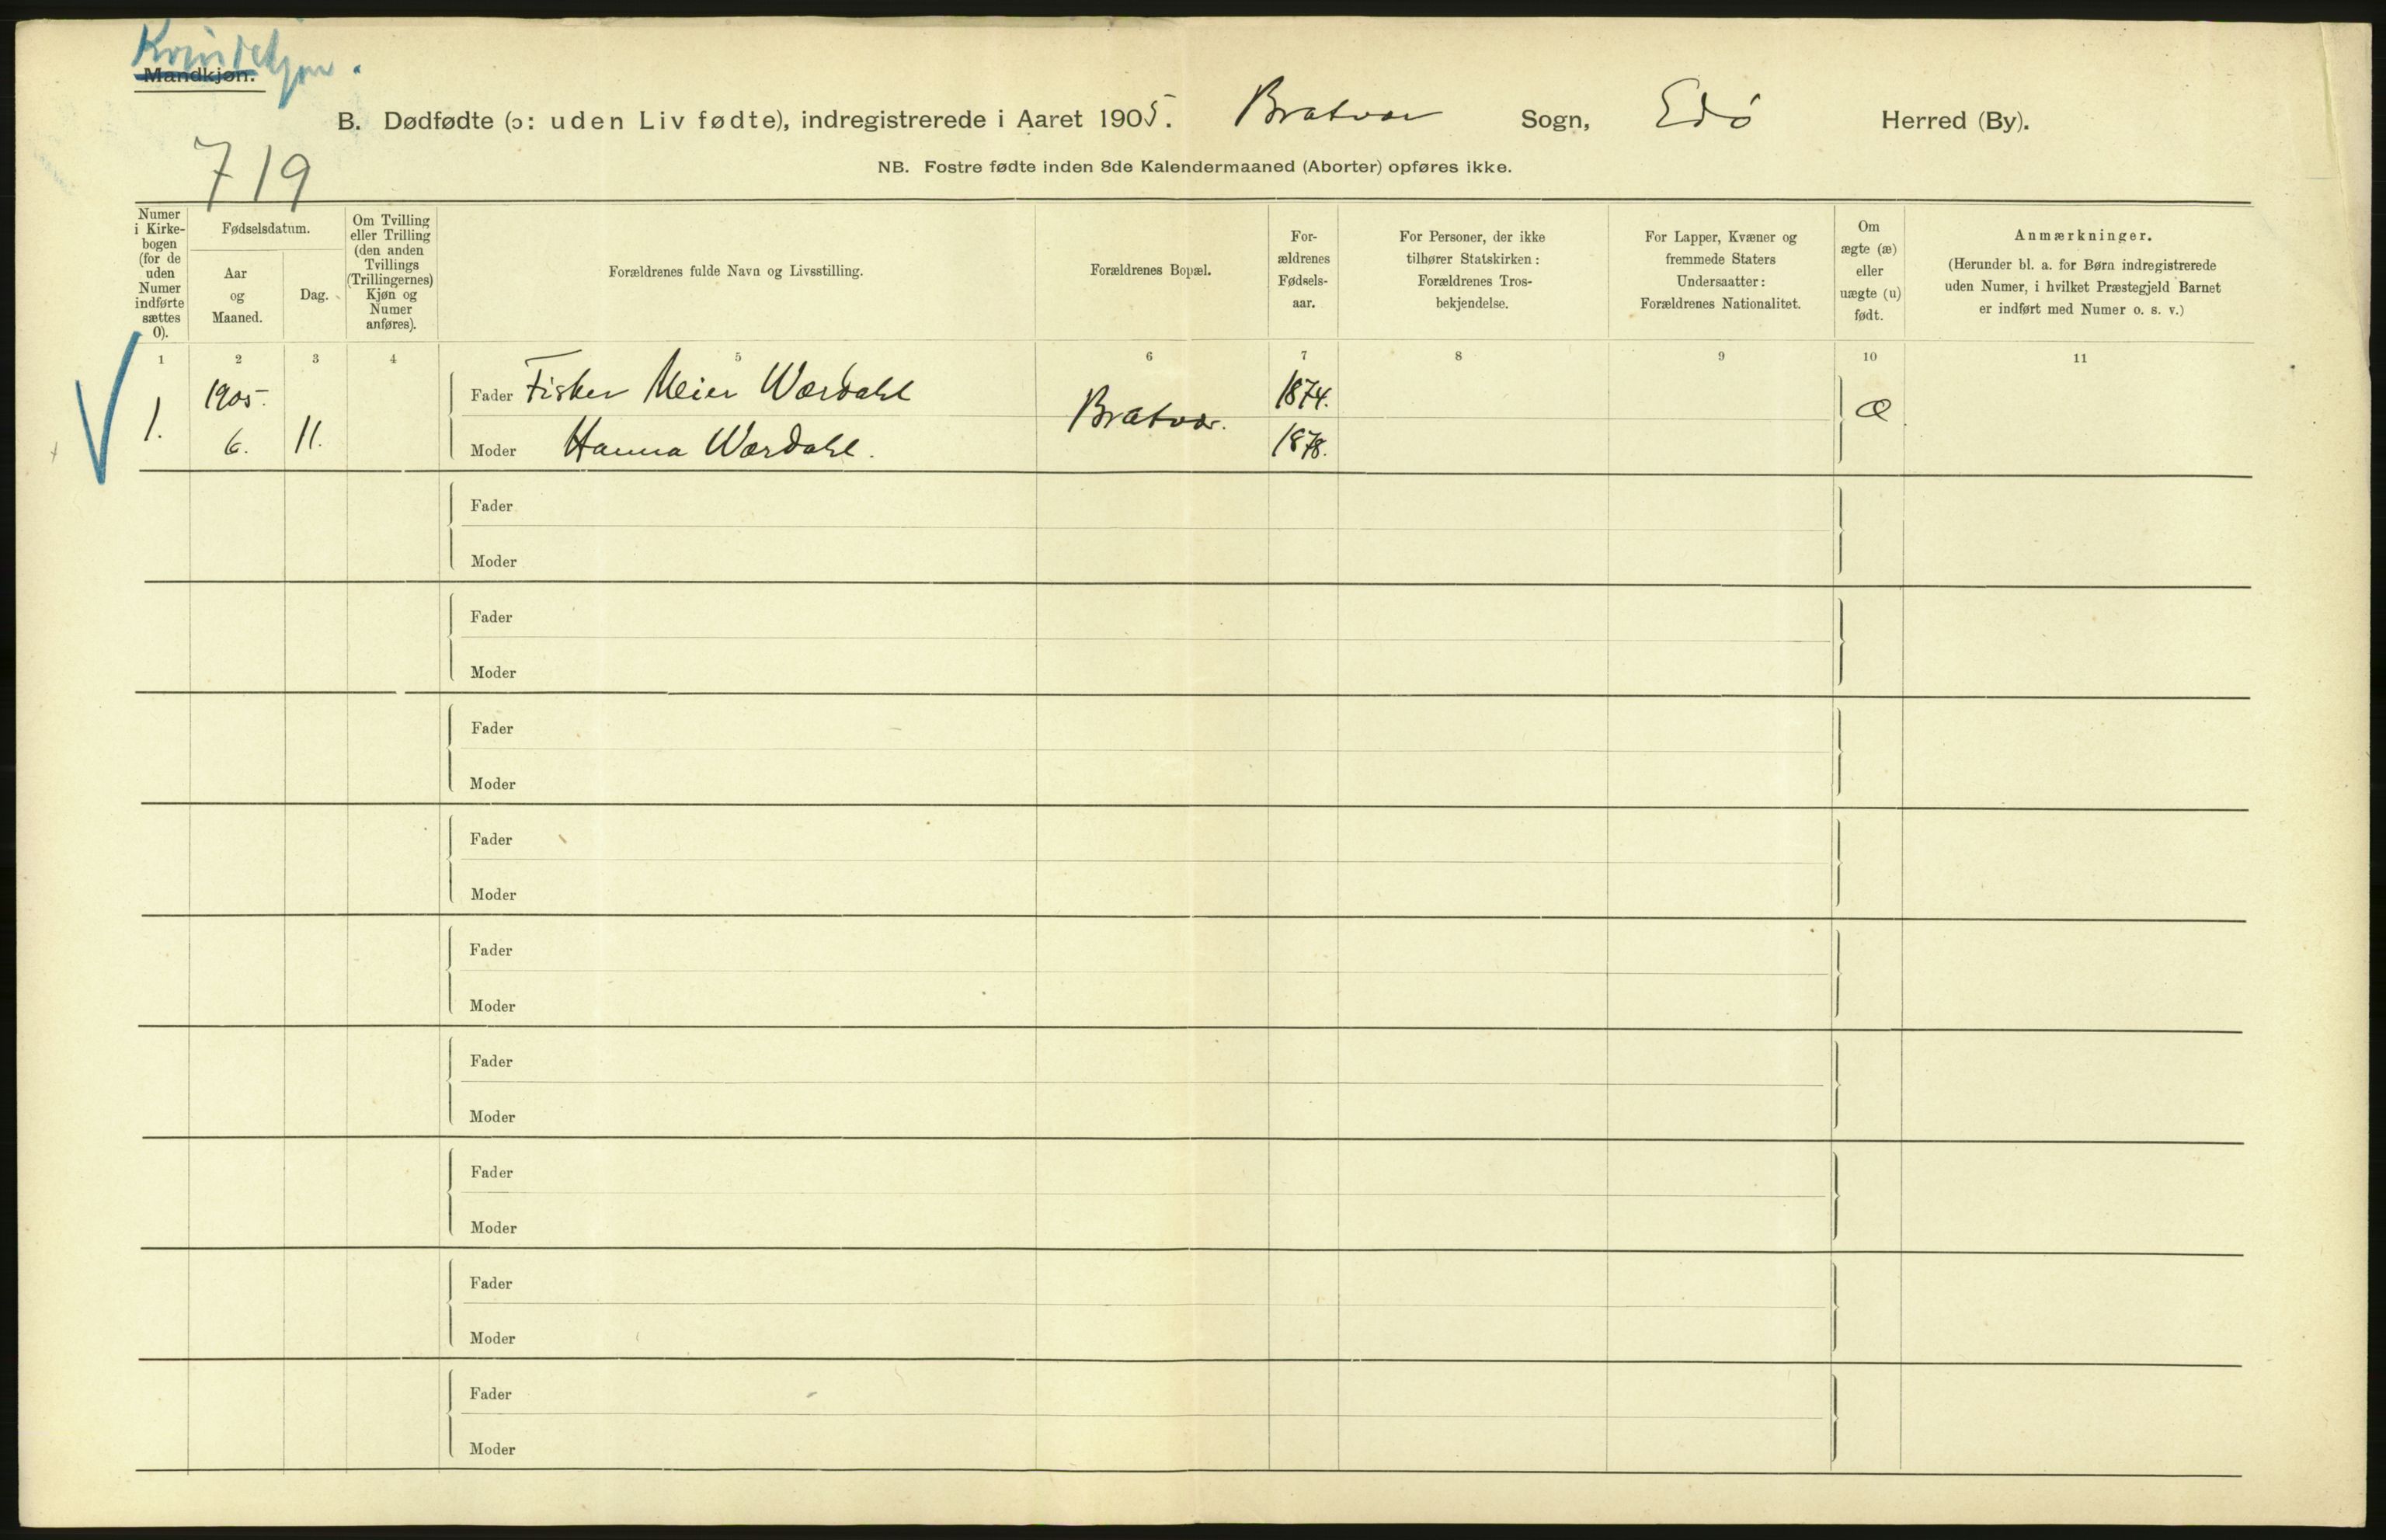 Kvindekjøn.
Mandkjøn.
B. Dødfødte (ɔ: uden Liv fødte), indregistrerede i Aaret 1905. Bratvær Sogn, Edø Herred (By).
719
NB. Fostre fødte inden 8de Kalendermaaned (Aborter) opføres ikke.
Numer
i Kirke-
bogen
(for de
uden
Numer
indførte
sættes
0).
Fødselsdatum.
Aar
og
Maaned.
Dag.
Om Tvilling
eller Trilling
(den anden
Tvillings
(Trillingernes)
Kjøn og
Numer
anføres).
Forældrenes fulde Navn og Livsstilling.
Forældrenes Bopæl.
For-
ældrenes
Fødsels-
aar.
For Personer, der ikke
tilhører Statskirken:
Forældrenes Tros-
bekjendelse.
For Lapper, Kvæner og
fremmede Staters
Undersaatter:
Forældrenes Nationalitet.
Om
ægte (æ)
eller
uægte (u)
født.
Anmærkninger.
(Herunder bl. a. for Børn indregistrerede
uden Numer, i hvilket Præstegjeld Barnet
er indført med Numer o. s. v.)
1 2 3 4 5 6 7 8 9 10 11
1.
1905.
6.
11.
Fader Fisker Meier Værdahl
Moder Hanna Værdahl.
Bratvær.
1874.
1878.
æ
Fader
Moder
Fader
Moder
Fader
Moder
Fader
Moder
Fader
Moder
Fader
Moder
Fader
Moder
Fader
Moder
Fader
Moder